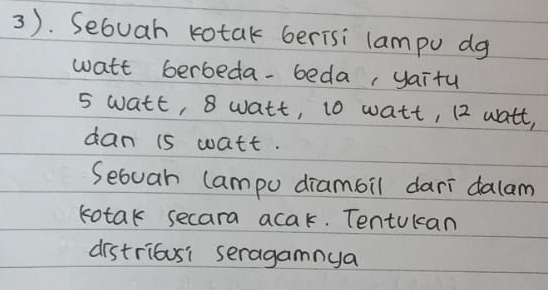 3). Sebuah kotak berisi lampu dg
watt berbeda - beda , yaitu
5 watt, 8 watt, 10 watt, 12 watt,
dan 15 watt.
Sebuah lampu diambil dari dalam
kotak secara acak. Tentukan
distribusi seragamnya